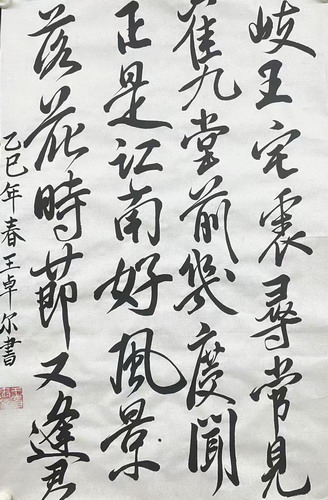 岐王宅裏尋常見
崔九堂前幾度聞
正是江南好風景
落花時節又逢君
乙巳年春王卓尔書